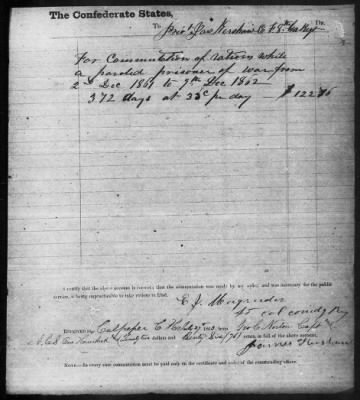 The Confederate States,
To Priv't Jas Kershaw Co F 8th La Regt Dr.
For Commutation of rations while
a paroled prisoner of war from
2d Dec 1861 to 9th Dec 1862
372 days at 33c per day $122 76
I certify that the above account is correct; that the commutation was made by my order, and was necessary for the public
service, it being impracticable to take rations in kind.
Col comdg
RECEIVED, at Culpeper C House, Capt
One Hundred & Twenty two dollars and 76/ cents in full of the above account.
James Kershaw
NOTE.—In every case commutation must be paid only on the certificate and order of the commanding officer.